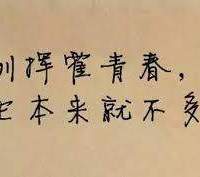 别挥霍青春，
它本来就不多